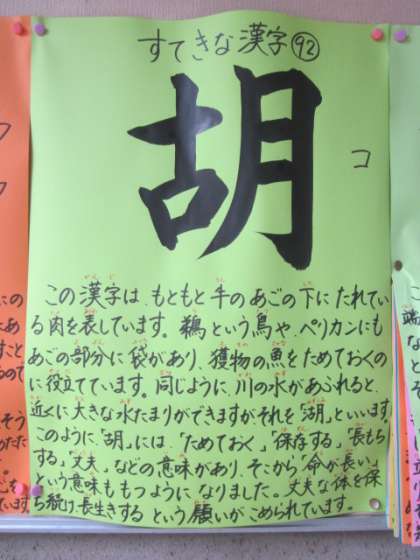 すてきな漢字92
胡
コ
この漢字は、もともと牛のあごの下にたれてい
る肉を表しています。鵜という鳥や、ペリカンにも
あごの部分に袋があり、獲物の魚をためておくの
に役立てています。同じように、川の水があふれると、
近くに大きな水たまりができますが、それを「湖」といいます。
このように、「胡」には、「ためておく」「保存する」「長もち
する」「丈夫」などの意味があり、そこから「命が長い」
という意味ももつようになりました。丈夫な体を保
ち続け、長生きするという願いがこめられています。